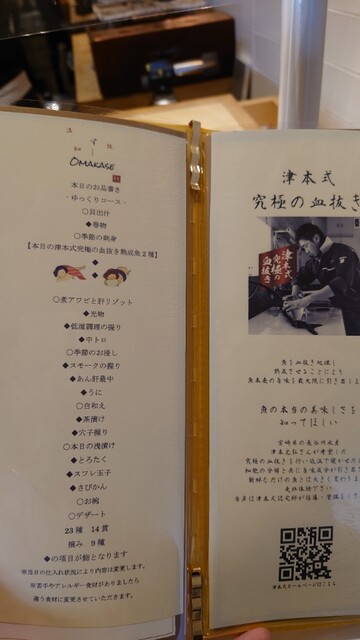 OMAKASE
本日のお品書き
- ゆっくりコース -
○貝出汁
◆巻物
○季節の刺身
【本日の津本式究極の血抜き熟成魚2種】
◆
◆
○煮アワビと肝リゾット
◆光物
◆低温調理の握り
◆中トロ
○季節のお浸し
◆スモークの握り
◆あん肝最中
◆うに
○白和え
◆茶漬け
◆穴子握り
○本日の浅漬け
◆とろたく
◆スフレ玉子
◆きびかん
○お椀
○デザート
23種 14貫
摘み 9種
◆の項目が鮨となります
※当日の仕入れ状況により内容は変更します。
※苦手やアレルギー食材がありましたら
違う食材に変更させていただきます。
津本式
究極の血抜き
津本式
究極の
血抜き
魚を血抜き処理し
熟成させることにより
魚本来の旨味を最大限に引き出し
魚の本当の美味しさを
知ってほしい
宮崎県の長谷川水産
津本光弘さんが考案した
究極の血抜きを行い低温で寝かせ